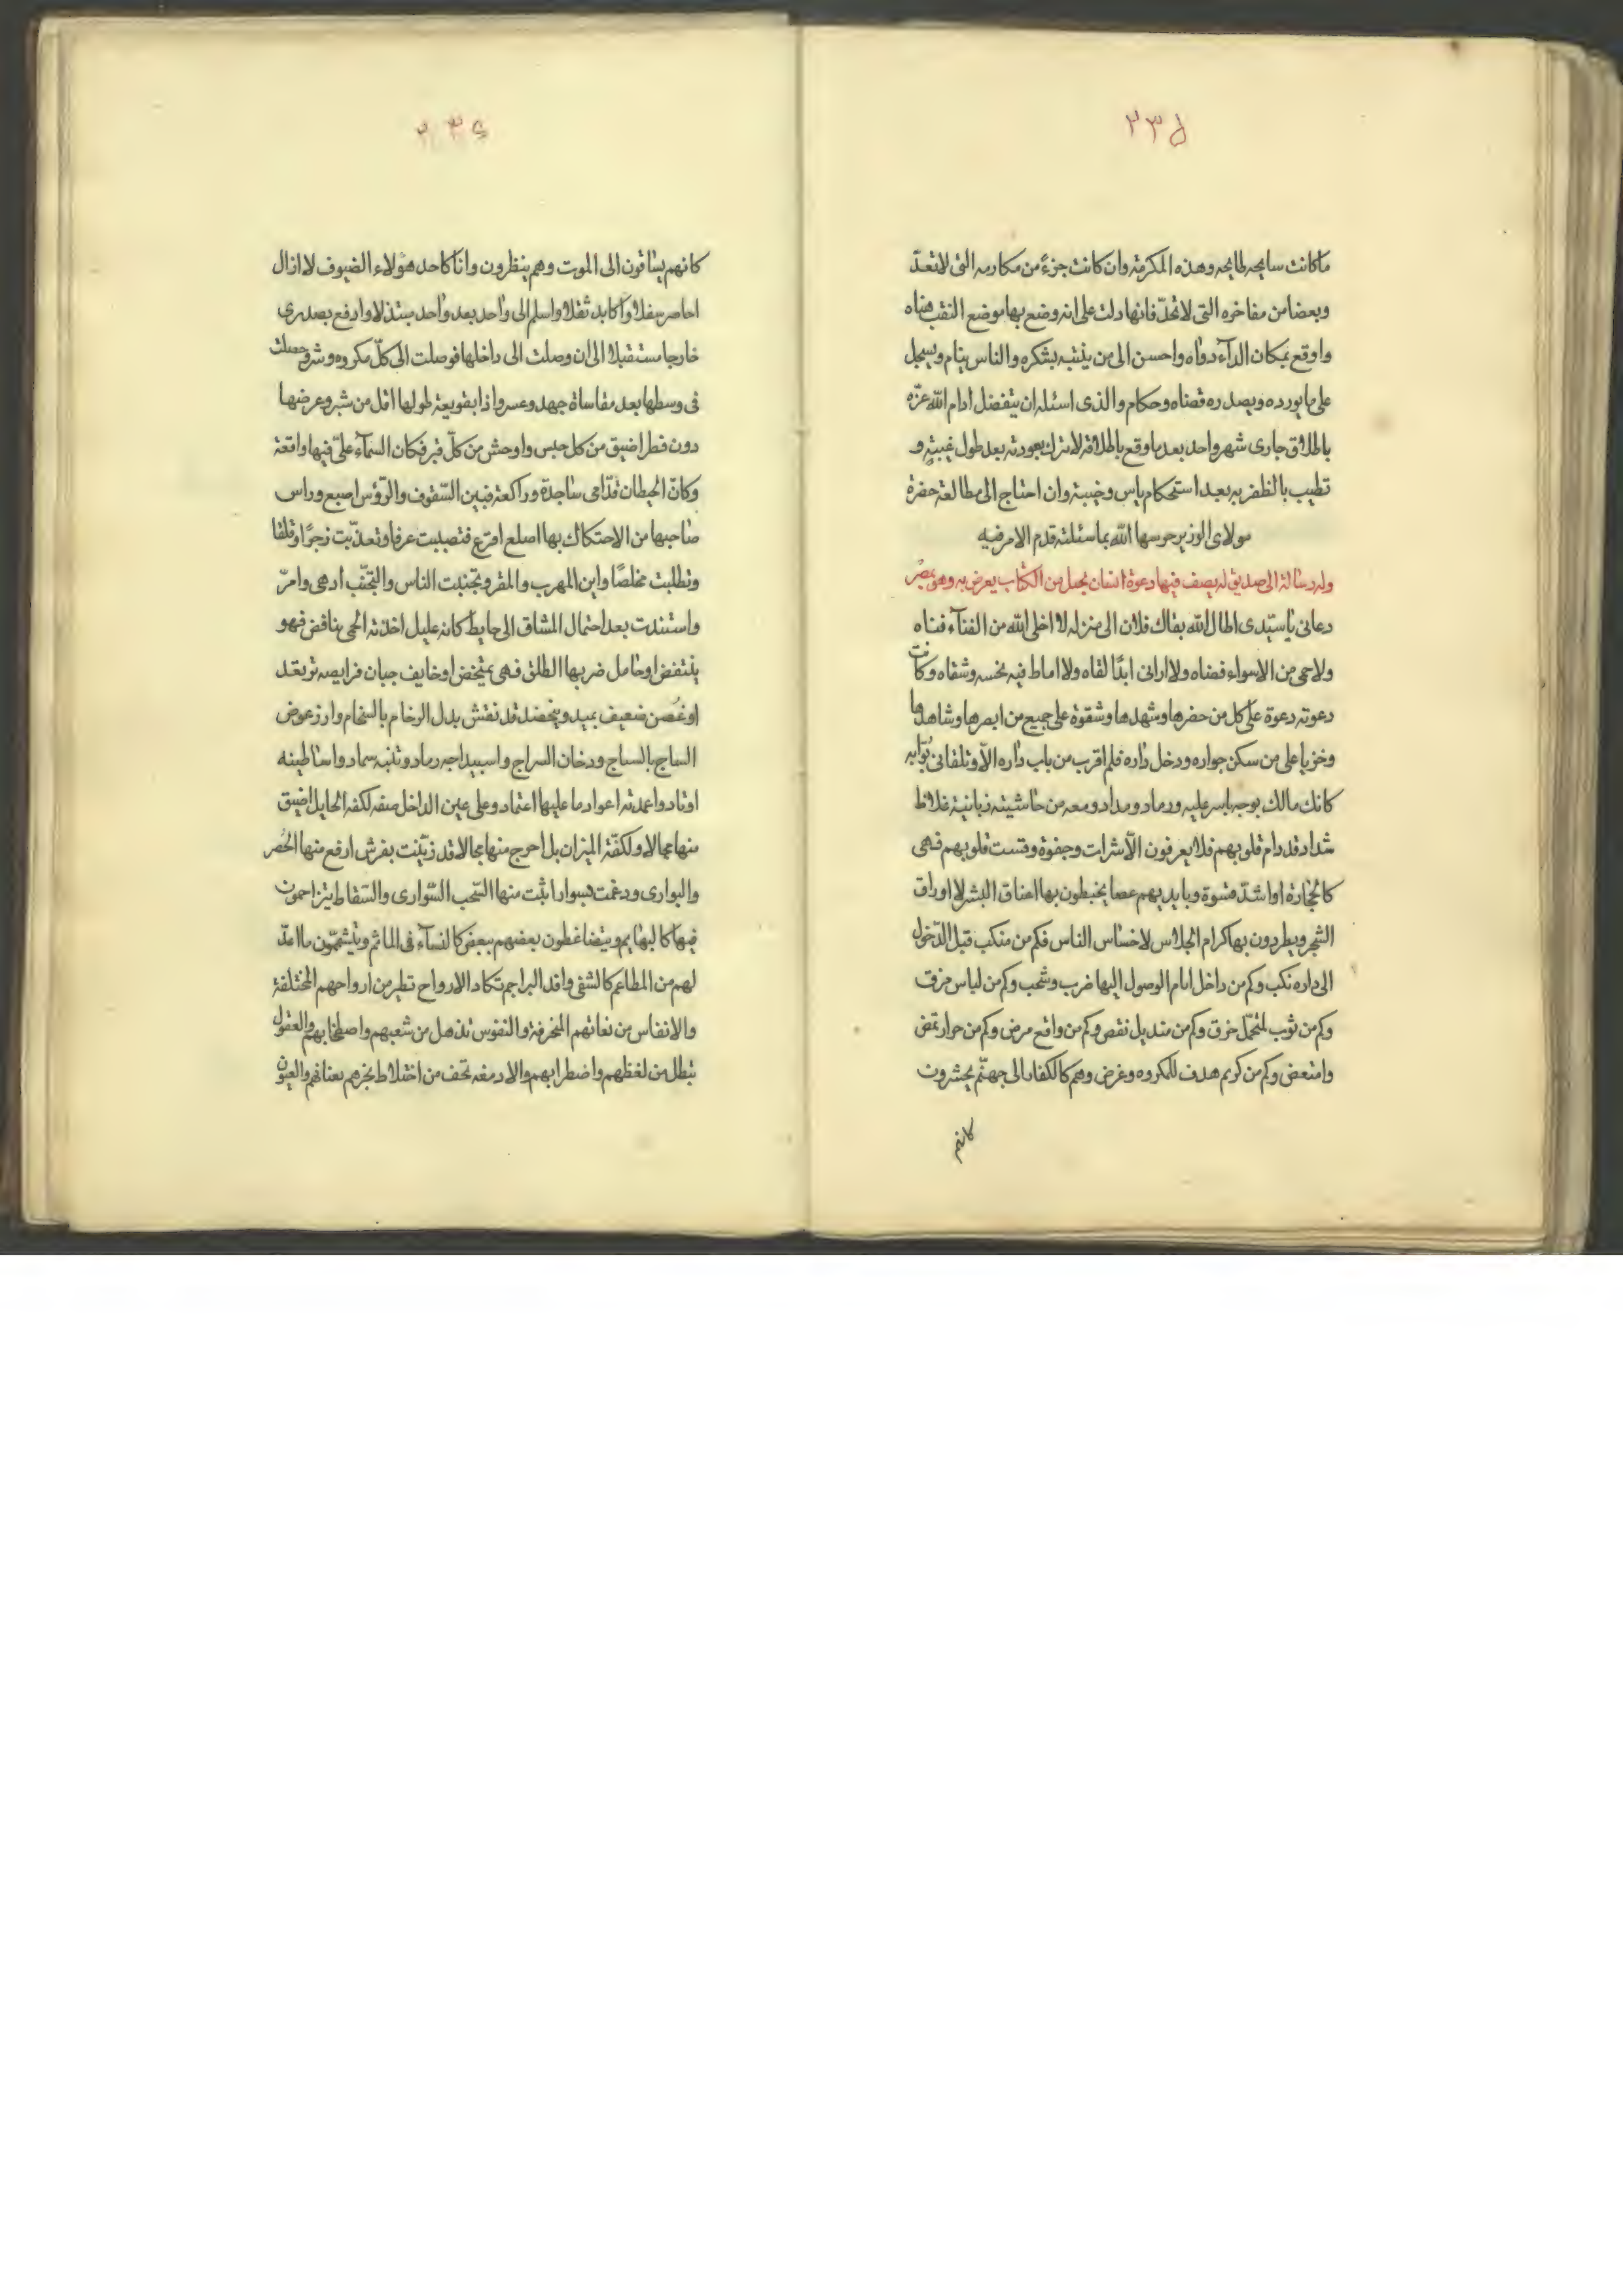 ٢٣٥
ما كانت سايحه طايحه وهذه المكرمة وان كانت جزءً من مكارمه التى لا تعدّ
وبعضا من مفاخره التى لا تحدّ فانها دلت على انه وضع بها موضع النقب هناه
واوقع بمكان الدآء دواه واحسن الى من يثنيه بشكره والناس ينام ويسجل
على ما يورده ويصدره قضاه وحكام والذى اسئله ان يتفضل ادام الله عزه
باطلاق جارى شهر واحد بعد ما وقع باطلاقه لاترك بعودته بعد طول غيبته و
تطيب بالظفر به بعد استحكام ياس وخيبة وان احتاج الى مطالعة حضرة
مولاى الوزير حرسها الله بما سئلته قدم الامر فيه
وله رسالة الى صديق له يصف فيها دعوة انسان بخيل من الكتاب يعرض به وهى بمصر
دعانى يا سيّدى اطال الله بقاك فلان الى منزله لا اخلى الله من الفنآء فناه
ولا حمى من الاسواء فضاه ولا ارانى ابدًا لقاه ولا اماط فيه نحسه وشقاه وكانت
دعوته دعوة على كل من حضرها وشهدها وشقوة على جميع من ابصرها وشاهدها
وخزيا على من سكن جواره ودخل داره فلم اقرب من باب داره الّا وتلقانى بوّابه
كانك مالك بوجه باسر عليه ورماد ومداد ومعه من حاشيته زبانية غلاظ
شداد قد رام قلوبهم فلا يعرفون الّا شرات وجفوة وقست قلوبهم فهى
كالحجارة او اشدّ قسوة وبايديهم عصا يخبطون بها اعناق البشر لا اوراق
الشجر ويطردون بها كرام الجلاس لاخساس الناس فكم من منكب قبل الدّخول
الى داره نكب وكم من داخل امام الوصول اليها ضرب وشحب وكم من لباس مزق
وكم من ثوب لمتجمّل خرق وكم من منديل نقص وكم من واقع مرض وكم من حوار تمض
وامتعض وكم من كريم هدف للمكروه وغرض وهم كالكفار الى جهنّم يحشرون
كانهم
٢٣٤
كانهم يساقون الى الموت وهم ينظرون وانا كاحد هؤلاء الضيوف لا ازال
احاصر سفلا واكابد ثقلا واسلم الى واحد بعد واحد مبتذلا وادفع بصدرى
خارجا مستقبلا الى ان وصلت الى داخلها فوصلت الى كلّ مكروه وشر وحصلت
فى وسطها بعد مقاساة جهد وعسر واذا بقويعة طولها اقل من شبر وعرضها
دون فطر اضيق من كل حبس واوحش من كلّ قبر فكان السمآء علىّ فيها واقعة
وكانّ الحيطان قدّامى ساجدة وراكعة فبين السّقوف والرّؤس اصبع وراس
صاحبها من الاحتكاك بها اصلع اقرع فتصببت عرقا وتعذّبت زجرًا وقلقا
وتطلبت مخلصًا واين المهرب والمفر وتجنبت الناس والتجنّب ادهى وامرّ
واستندت بعد احتمال المشاق الى حايط كانه عليل اخذته الحمى بنافض فهو
ينتفض او حامل ضربها الطلق فهى تمتخض او خايف جبان فرايصه ترتعد
او غصن ضعيف يميد ويتخضد قد نقش بدل الرخام بالسخام وازر عوض
الساج بالسباج ودخان السراج واسبيداجه رماد وتبنه سماد واساطينه
اوتاد واعمدته اعواد ما عليها اعتماد وعلى عين الداخل صفه لكفه الحابل اضيق
منها مجالا ولكفّة الميزان بل احرج منها مجالا قد زيّنت بفرش ارفع منها الحُصر
والبوارى ودعمت بسوار انبت منها السّحب السّوارى والسّقاط يتزاحمون
فيها كالبهايم ويتضاغطون بعضهم ببعض كالنسآء فى الماتم ويتشمّون ما اعدّ
لهم من المطاعم كالشفى وافد البراجم تكاد الارواح تطير من ارواحهم المختلفة
والانفاس من نغاتهم المنحرفة والنفوس تذهل من شعبهم واصطخابهم والعقول
تبطل من لغطهم واضطرابهم والادمغه تجف من اختلاط بخرهم بعنانهم والعيون